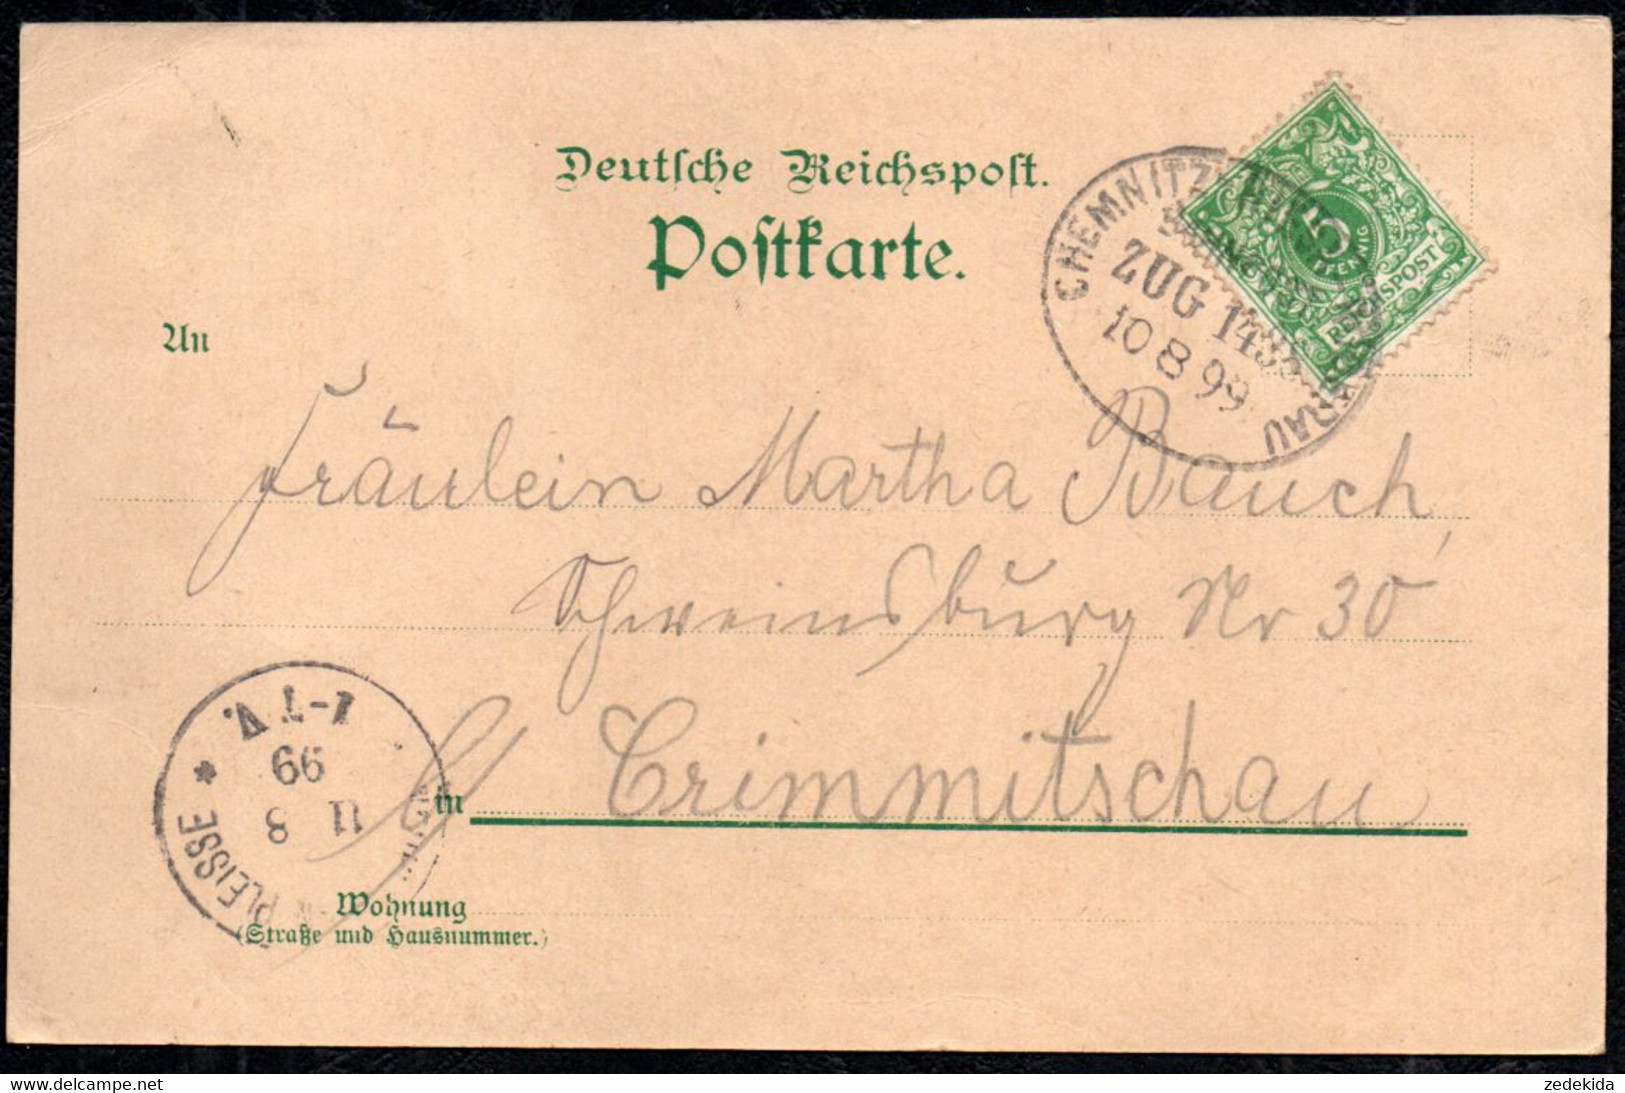 Deutsche Reichspost.
Postkarte.
5
PFENNIG
REICHSPOST
CHEMNITZ
ZUG 1435
10 8 99
An
Fräulein Martha Bauch,
Schweinsburg Nr 30
b/ Crimmitschau
in
PLEISSE *
11 8
99
1-7 V.
Wohnung
(Straße und Hausnummer.)
delcampe.net
zedekida